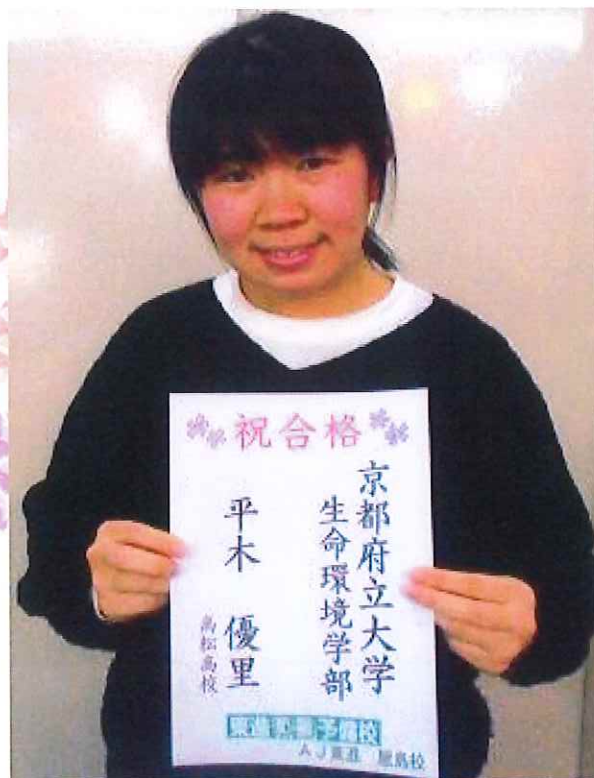 祝合格
京都府立大学
生命環境学部
平木 優里
高松高校
東進衛星予備校
AJ東進 屋島校